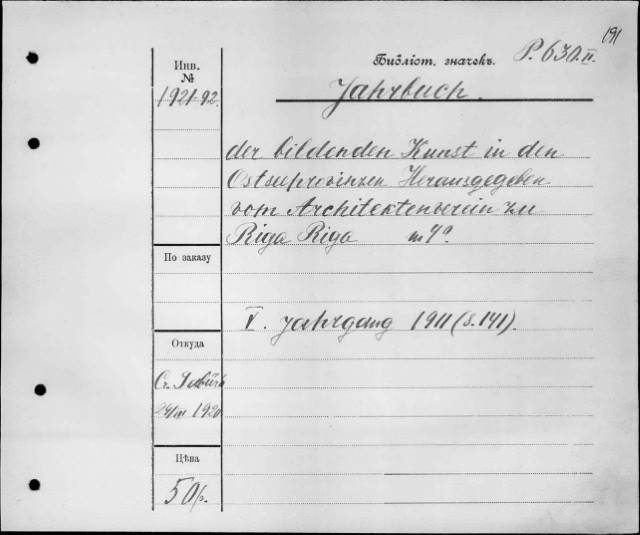 191
Библіот. значекъ. P. 630.II.
Инв.
№
1921-92.
Jahrbuch.
der bildenden Kunst in den
Ostseeprovinzen Herausgegeben
vom Architektenverein zu
Riga Riga in 4°.
По заказу
V. Jahrgang 1911 (S. 141).
Откуда
1920
Цѣна
50 р.